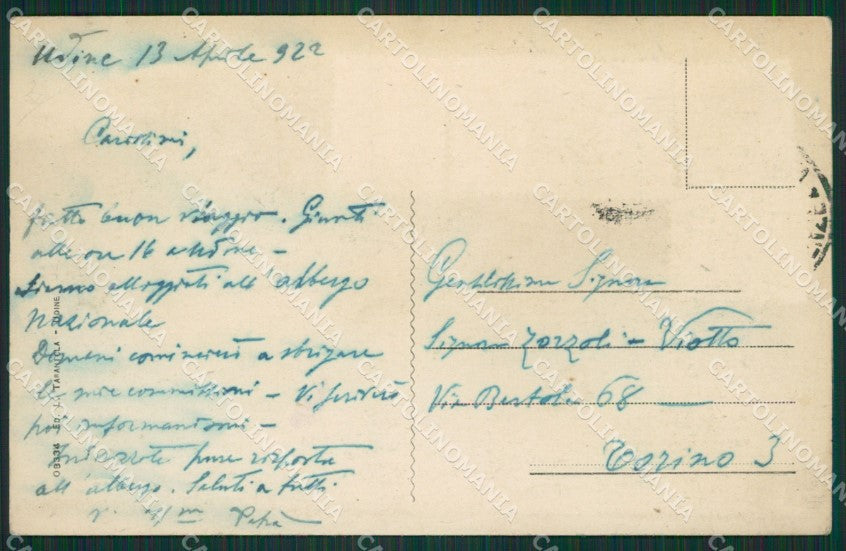 Udine 13 Aprile 922
Carissimi,
fatto buon viaggio. Giunti
alle ore 16 a Udine -
Siamo alloggiati all'albergo
Nazionale
Domani comincerò a sbrigare
le mie commissioni - Vi scriverò
poi informandovi -
Indirizzate pure risposta
all'albergo. Saluti a tutti
Papà
Gentilissima Signora
Signora Zorzoli - Viotto
Via Bertola 68
Torino 3
08336 - ED. L. TARANTOLA - UDINE
CARTOLINOMANIA